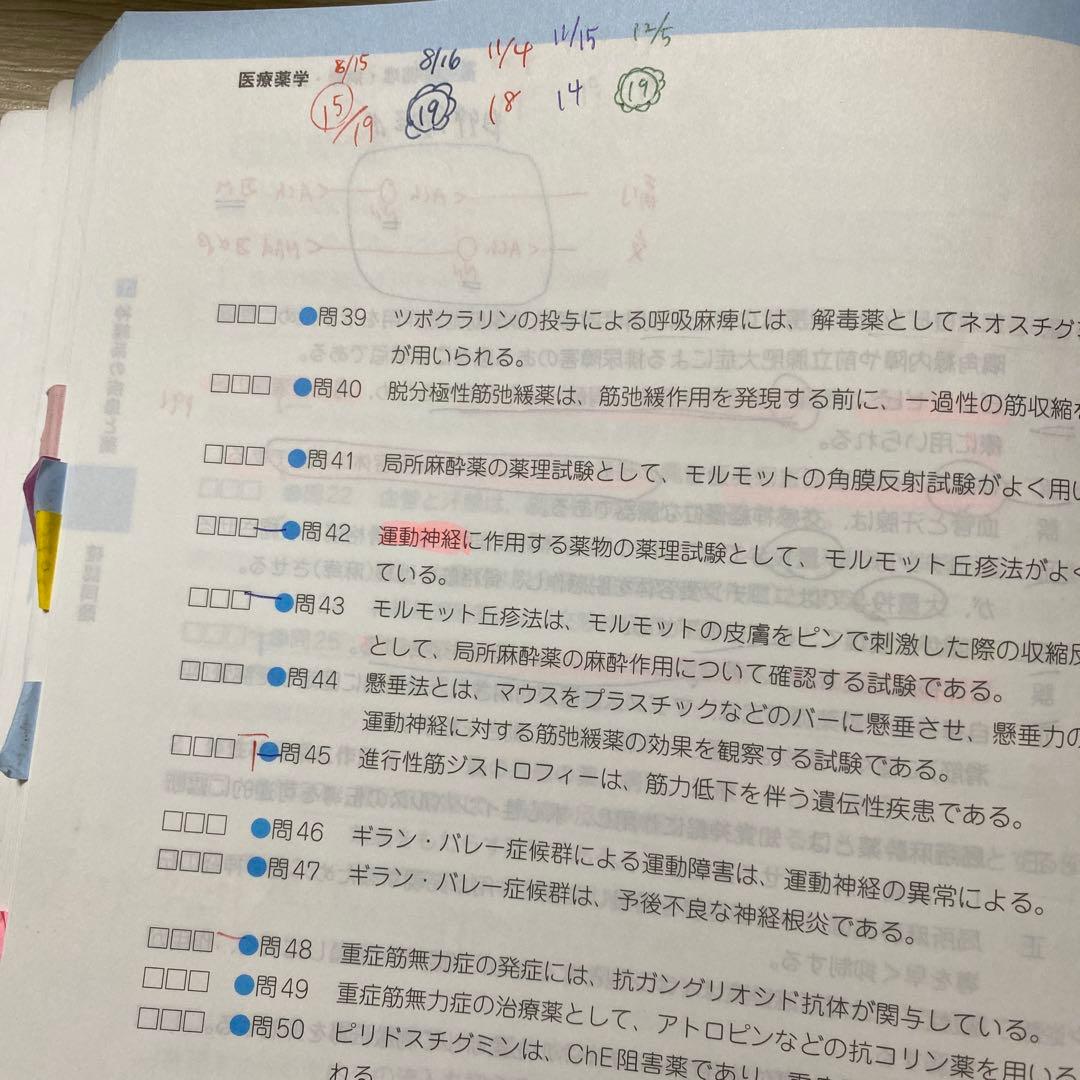 8/15 8/16 11/4 11/15 12/5
医療薬学
15/19 19 18 14 19
□□□ ●問39 ツボクラリンの投与による呼吸麻痺には、解毒薬としてネオスチグ
が用いられる。
□□□ ●問40 脱分極性筋弛緩薬は、筋弛緩作用を発現する前に、一過性の筋収縮を
□□□ ●問41 局所麻酔薬の薬理試験として、モルモットの角膜反射試験がよく用い
□□□ ●問42 運動神経に作用する薬物の薬理試験として、モルモット丘疹法がよく
ている。
□□□ ●問43 モルモット丘疹法は、モルモットの皮膚をピンで刺激した際の収縮反
として、局所麻酔薬の麻酔作用について確認する試験である。
□□□ ●問44 懸垂法とは、マウスをプラスチックなどのバーに懸垂させ、懸垂力の
運動神経に対する筋弛緩薬の効果を観察する試験である。
□□□ ●問45 進行性筋ジストロフィーは、筋力低下を伴う遺伝性疾患である。
□□□ ●問46 ギラン・バレー症候群による運動障害は、運動神経の異常による。
□□□ ●問47 ギラン・バレー症候群は、予後不良な神経根炎である。
□□□ ●問48 重症筋無力症の発症には、抗ガングリオシド抗体が関与している。
□□□ ●問49 重症筋無力症の治療薬として、アトロピンなどの抗コリン薬を用いる
□□□ ●問50 ピリドスチグミンは、ChE阻害薬であり、重
れる。